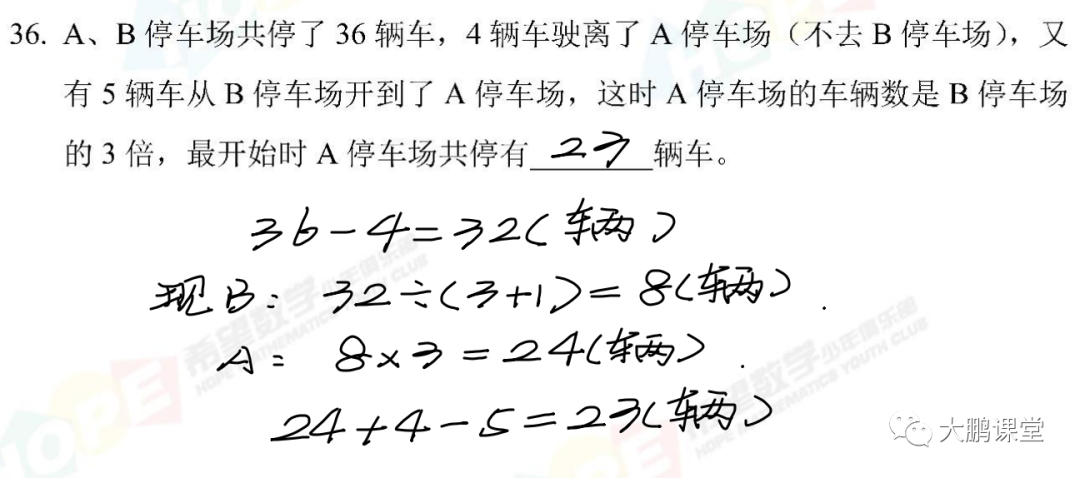 36. A、B 停车场共停了 36 辆车，4 辆车驶离了 A 停车场（不去 B 停车场），又
有 5 辆车从 B 停车场开到了 A 停车场，这时 A 停车场的车辆数是 B 停车场
的 3 倍，最开始时 A 停车场共停有 23 辆车。
36-4=32(车两)
现B: 32÷(3+1)=8(车两).
A: 8×3=24(车两).
24+4-5=23(车两)
HOPE
希望数学 少年俱乐部
HOPE MATHEMATICS YOUTH CLUB
大鹏课堂